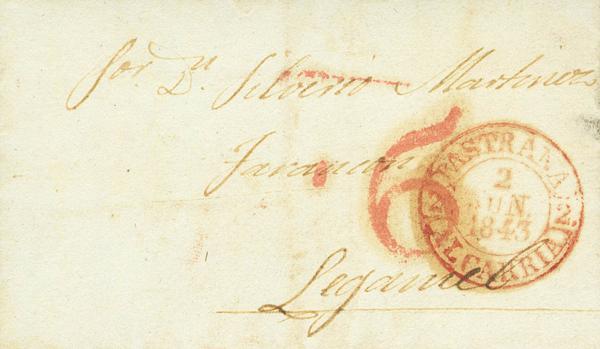 Sor. Dn. Silverio Martinez
Tarancon
6
PASTRANA
2
JUN.
1843
ALCARRIA
Leganiel